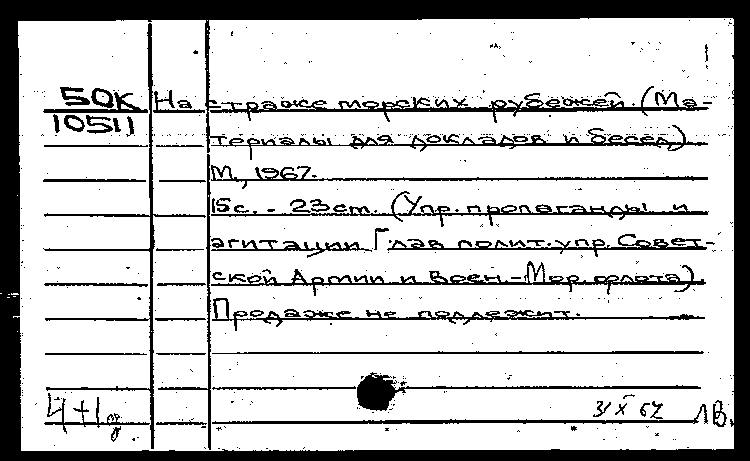 50К На страже морских рубежей. (Ма-
10511
териалы для докладов и бесед)
М., 1967.
15с. - 23cm. (Упр. пропаганды и
агитации Глав полит. упр. Совет-
ской Армии и Воен.-Мор. флота)
Продаже не подлежит.
4+1
31 X 67 ЛВ.